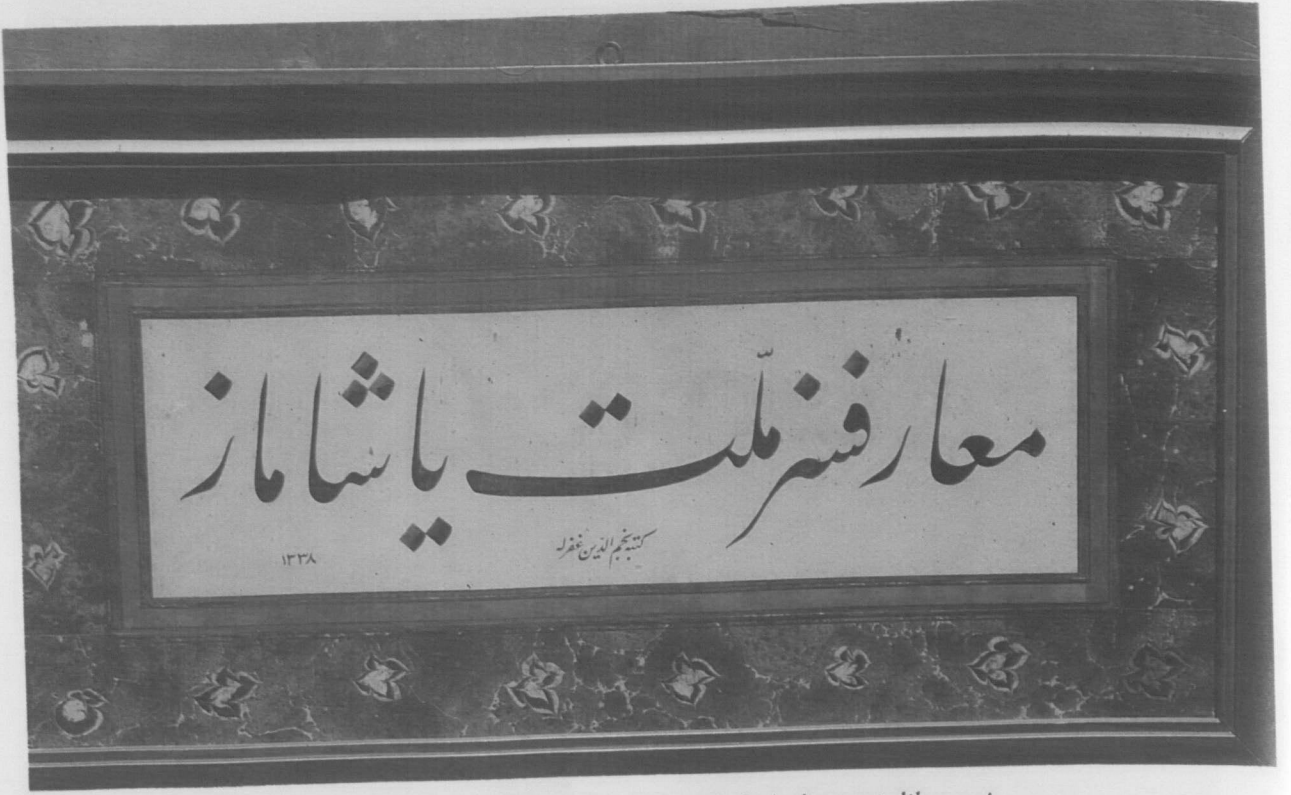 معارفسز ملّت یاشاماز
کتبه نجم الدین غفرله
۱۳۳۸